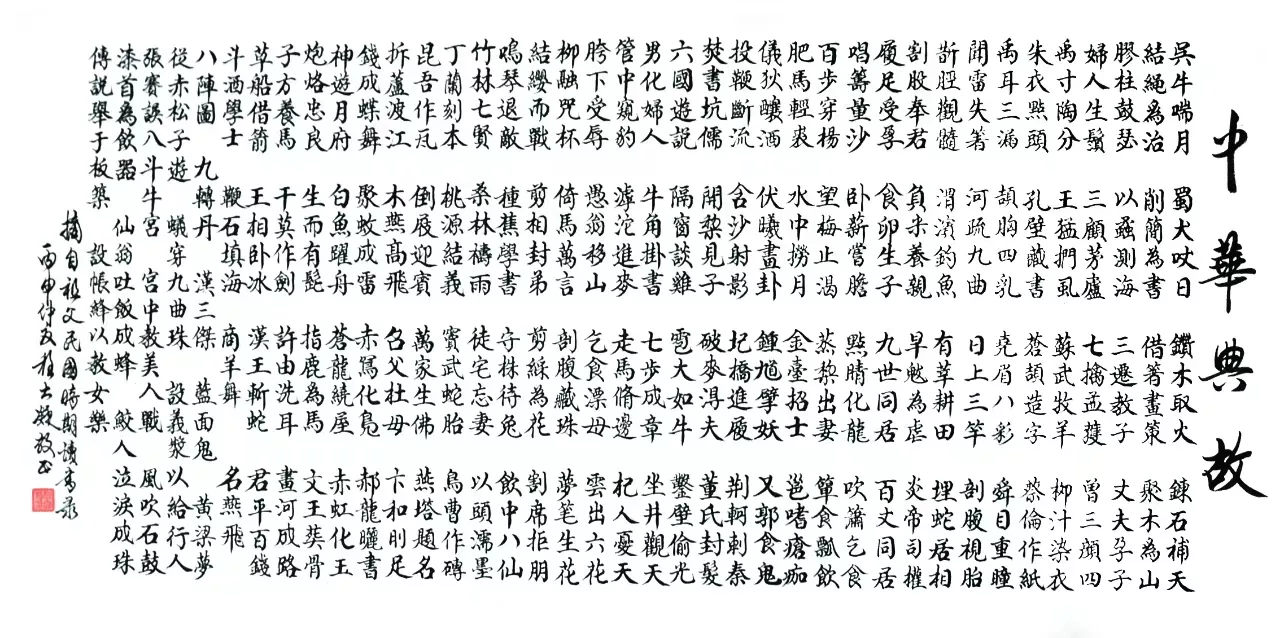 中華典故
吳牛喘月 蜀犬吠日 鑽木取火 鍊石補天
結繩為治 削簡為書 借著畫策 聚木為山
膠柱鼓瑟 以蠡測海 三遷教子 丈夫孕子
婦人生鬚 三顧茅廬 七擒孟獲 曾三顏四
禹寸陶分 王猛捫虱 蘇武牧羊 柳汁染衣
朱衣點頭 孔壁藏書 蒼頡造字 蔡倫作紙
禹耳三漏 頡胸四乳 堯眉八彩 舜目重瞳
聞雷失著 河疏九曲 日上三竿 剖腹視胎
斮脛觀髓 渭濱釣魚 有莘耕田 埋蛇居相
割股奉君 負米養親 早魃為虐 炎帝司權
履足受孚 食卵生子 九世同居 百丈同居
唱籌量沙 卧薪嘗膽 點睛化龍 吹簫乞食
百步穿楊 望梅止渴 蒸藜出妻 簞食瓢飲
肥馬輕裘 水中撈月 金臺招士 邕嗜瘡痂
儀狄釀酒 伏曦畫卦 鍾馗擘妖 又郭食鬼
投鞭斷流 含沙射影 圯橋進履 荆軻刺秦
焚書坑儒 開棃見子 破麥得夫 董氏封髮
六國遊説 隔窗談雞 雹大如牛 鑿壁偷光
男化婦人 牛角掛書 七步成章 坐井觀天
管中窺豹 滹沱進麥 走馬脩邊 杞人憂天
胯下受辱 愚翁移山 乞食漂母 雲出六花
柳融咒杯 倚馬萬言 剖腹藏珠 夢笔生花
結纓而戰 剪相封弟 剪綵為花 割席拒朋
鳴琴退敵 種蕉學書 守株待兔 飲中八仙
竹林七賢 桑林禱雨 徒宅忘妻 以頭濡墨
丁蘭刻本 桃源結義 竇武蛇胎 烏曹作磚
昆吾作瓦 倒屐迎賓 萬家生佛 燕塔題名
拆蘆波江 木燕高飛 名父杜母 卞和刖足
錢成蝶舞 聚蚊成雷 赤舄化鳧 郝龍曬書
神遊月府 白魚躍舟 蒼龍繞屋 赤虹化玉
炮烙忠良 生而有髭 指鹿為馬 文王葬骨
子方養馬 干莫作劍 許由洗耳 畫河成路
草船借箭 王相卧冰 漢王斬蛇 君平百錢
斗酒學士 鞭石填海 商羊舞 名燕飛
八陣圖 九轉丹 漢三傑 藍面鬼 黄梁夢
從赤松子遊 蟻穿九曲珠 設義漿以給行人
張賽誤八斗牛宮 宮中教美人戰 風吹石鼓
漆首為飲器 仙翁吐飯成蜂 鮫人泣淚成珠
傳説舉于板築 設帳絳以教女樂
摘自祖父民國時期讀書录
丙申仲夏